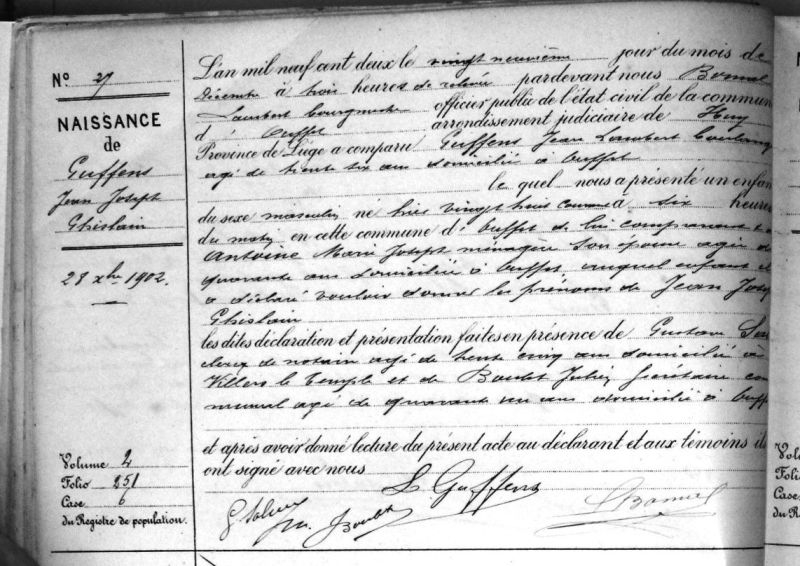 N° 27
NAISSANCE
de
Guffens
Jean Joseph
Ghislain
28 xbre 1902.
Volume 2
Folio 251
Case 6
du Registre de population.
L'an mil neuf cent deux le vingt neuvième jour du mois de
Décembre à trois heures de relevée pardevant nous Bonmel
Lambert bourgmestre officier public de l'état civil de la commun
d'Ouffet arrondissement judiciaire de Huy
Province de Liége a comparu Guffens Jean Lambert
agé de trente six ans domicilié à Ouffet
le quel nous a présenté un enfan
du sexe masculin né hier vingt huit courant à six heures
du matin en cette commune d'Ouffet de lui comparant et
Antoine Marie Joseph ménagère son épouse agée de
quarante ans domiciliée à Ouffet, auquel enfant il
a déclaré vouloir donner les prénoms de Jean Josep
Ghislain
les dites déclaration et présentation faites en présence de Gustave
clerc de notaire agé de trente cinq ans domicilié à
Villers le Temple et de Boulet Julien Secrétaire com
munal agé de quarante un ans domicilié à Ouff
et après avoir donné lecture du présent acte au déclarant et aux témoins ils
ont signé avec nous
L Guffens
Boulet
LBonmel
N
Volu
Foli
Case
du R